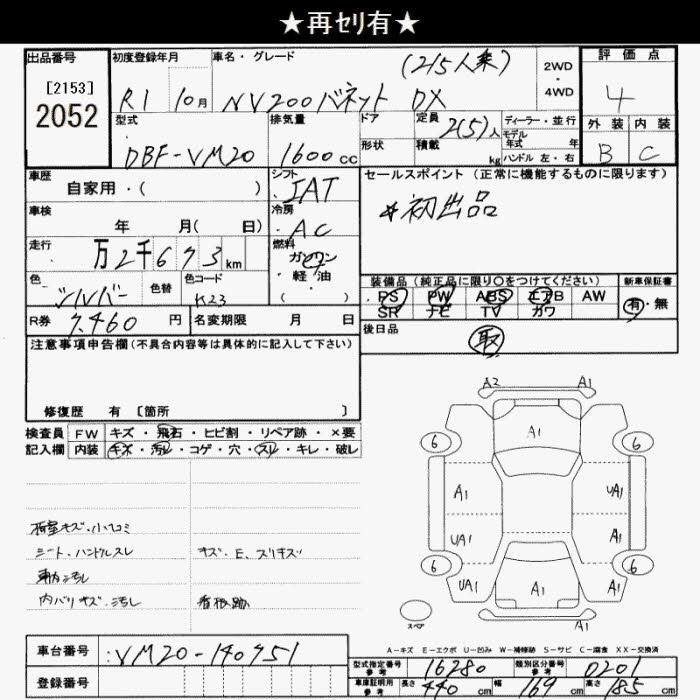 ★再セリ有★
出品番号 初度登録年月 車名・グレード 評価点
[2153]
2052
R1 10月 NV200バネット DX (2/5人乗) 2WD・4WD 4
型式 排気量 ドア 定員 ディーラー・並行 外装 内装
DBF-VM20 1600cc 2(5)人 モデル年式 年 B C
形状 積載 kg ハンドル 左・右
車歴 シフト セールスポイント(正常に機能するものに限ります)
自家用・( ) IAT
*初出品
車検 冷房
年 月( 日) AC
走行 燃料
万2千673km ガソリン・軽油・( )
色 色替 色コード
シルバー K23
装備品(純正品に限り○をつけてください) 新車保証書
PS PW ABS エアB AW 有・無
SR ナビ TV カワ
R券 7,460円 名変期限 月 日
後日品 取
注意事項申告欄(不具合内容等は具体的に記入して下さい)
修復歴 有 [箇所 ]
検査員 FW キズ・飛石・ヒビ割・リペア跡・×要
記入欄 内装 キズ・汚レ・コゲ・穴・スレ・キレ・破レ
荷室キズ・小ヘコミ
シート・ハンドルスレ キズ、E、スリキズ
車内汚レ
内バリキズ・汚レ 看板跡
A2 A1
A1
6 6
A1 UA1
UA1 A1
6 6
UA1 A1 UA1
スペア
A1
A-キズ E-エクボ U-凹み W-補修跡 S-サビ C-腐食 XX-交換済
車台番号 :VM20-140751
型式指定番号 参考 16280 類別区分番号 参考 0201
登録番号
車庫証明用 参考 長さ 440cm 幅 169cm 高さ 185cm